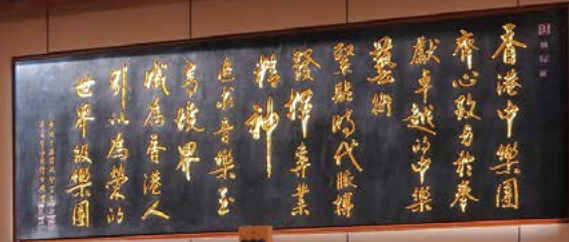 香港中樂團
齊心致力於奉
獻卓越的中樂
藝術
緊貼時代脈搏
發揮專業
精神
追求音樂至
高境界
成為香港人
引以為榮的
世界級樂團